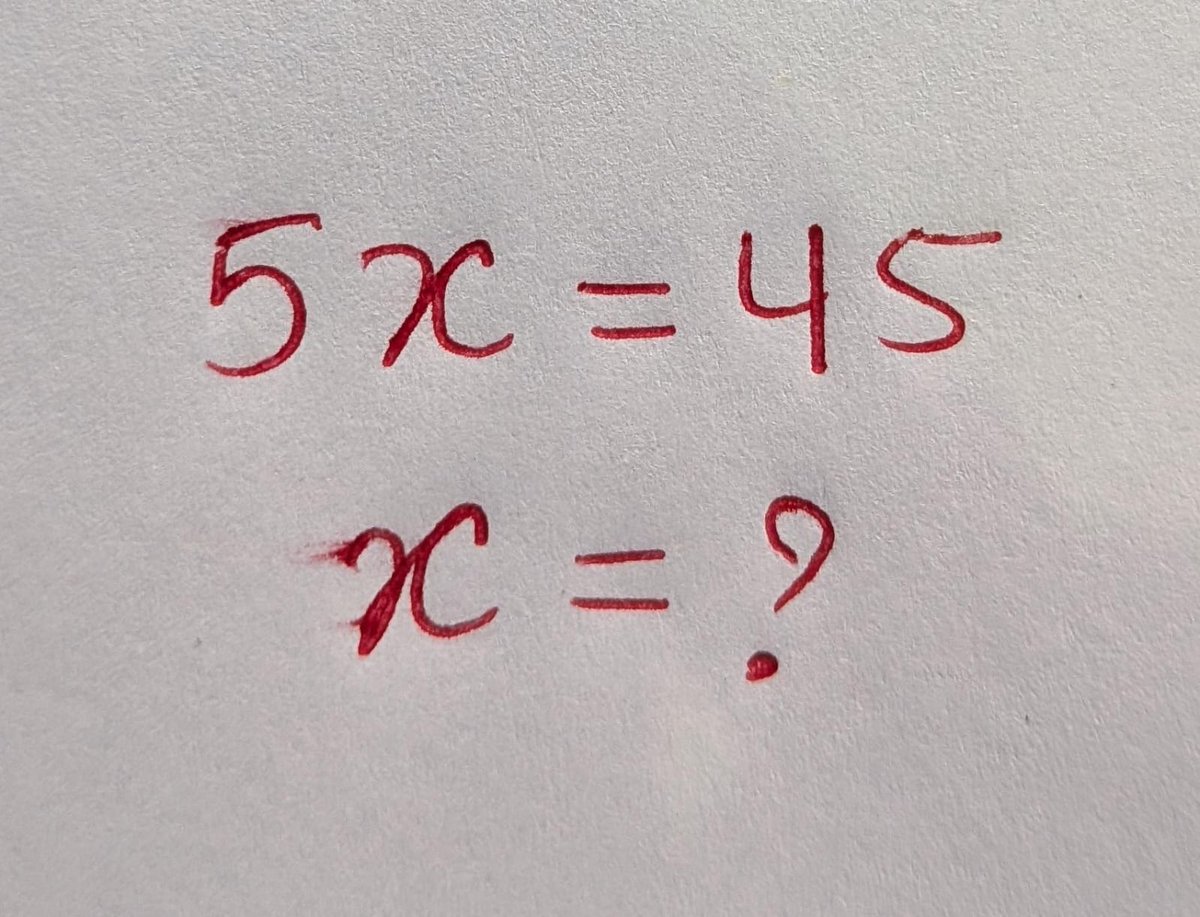 5x = 45
x = ?